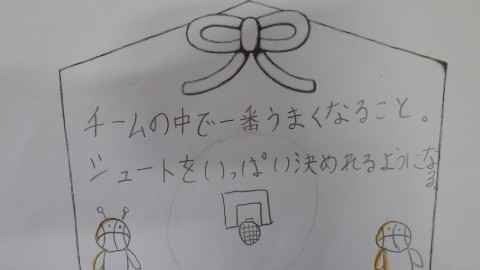 チームの中で一番うまくなること。
シュートをいっぱい決めれるようになる。